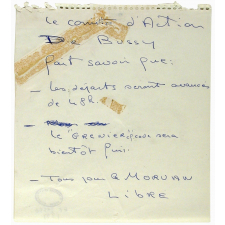 Le comité d'Action
De Bussy
fait savoir que:
- les départs seront avancés
de 48h.
-
le GRENIER école sera
bientôt fini.
- Tous pour le MORVAN
LIBRE